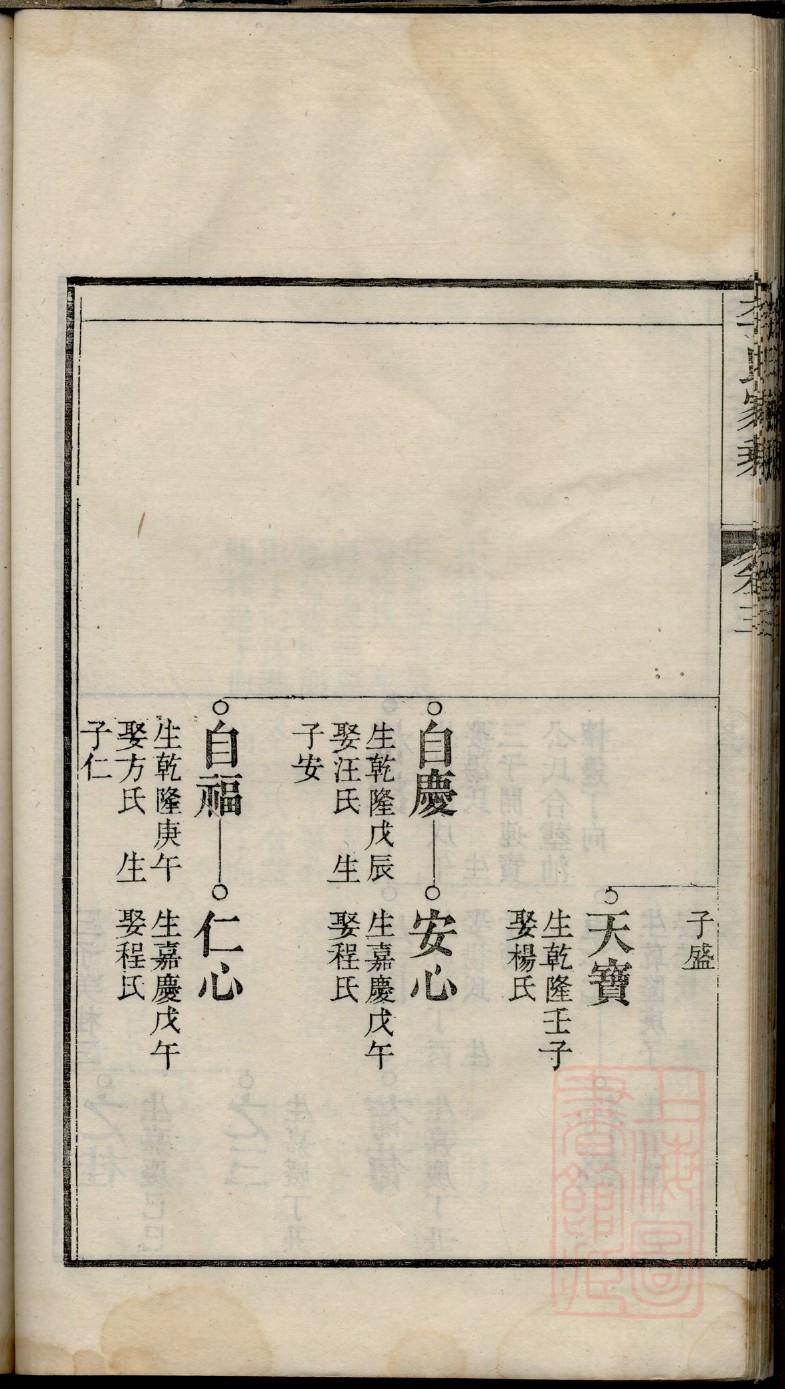 李氏家乘
卷三
子盛
天寶
生乾隆壬子
娶楊氏
自慶
生乾隆戊辰
娶汪氏 生
子安
安心
生嘉慶戊午
娶程氏
自福
生乾隆庚午
娶方氏 生
子仁
仁心
生嘉慶戊午
娶程氏
上海圖
書館藏